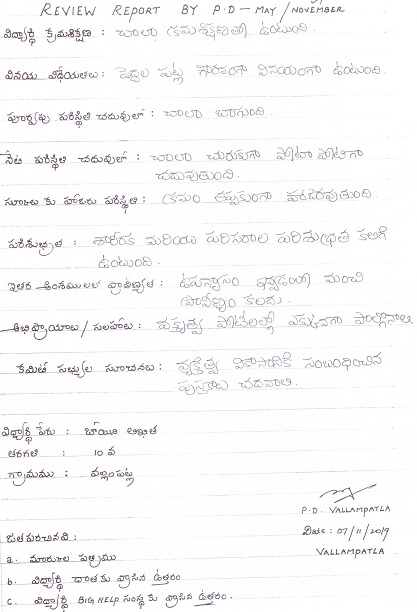 REVIEW REPORT BY P.D - MAY / NOVEMBER
విద్యార్థి క్రమశిక్షణ : చాలా క్రమశిక్షణతో ఉంటుంది.
వినయ విధేయతలు : పెద్దల పట్ల గౌరవంగా వినయంగా ఉంటుంది.
పూర్వపు పరిస్థితి చదువులో : చాలా బాగుంది
నేటి పరిస్థితి చదువులో : చాలా చురుకుగా పోటా పోటీగా
చదువుతుంది.
స్కూలు కు హాజరు పరిస్థితి : క్రమం తప్పకుండా హాజరవుతుంది.
పరిశుభ్రత : శారీరక మరియు పరిసరాల పరిశుభ్రత కలిగి
ఉంటుంది.
ఇతర అంశములలో ప్రావీణ్యత : ఉపన్యాసం ఇవ్వడంలో మంచి
ప్రావీణ్యం కలదు.
అభిప్రాయాలు / సలహాలు : వక్తృత్వ పోటీలల్లో ఎక్కువగా పాల్గొనాలి
కమిటీ సభ్యుల సూచనలు : వ్యక్తిత్వ వికాసానికి సంబంధించిన
పుస్తకాలు చదవాలి.
విద్యార్థి పేరు : బోయిని అఖిత
తరగతి : 10 వ
గ్రామము : వల్లంపట్ల
P.D. VALLAMPATLA
Date : 07/11/2019
VALLAMPATLA
జతపరచినవి :
a. మార్కుల పత్రము
b. విద్యార్థి దాతకు వ్రాసిన ఉత్తరం
c. విద్యార్థి BIG HELP సంస్థ కు వ్రాసిన ఉత్తరం.